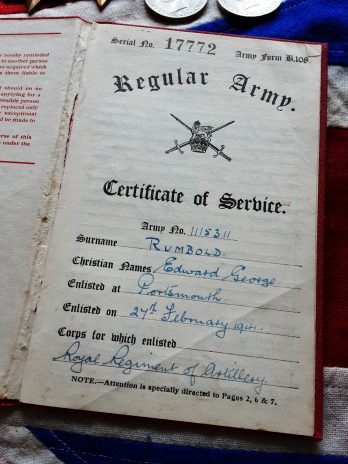 hereby reminded
to another person
so acquired which
s them liable to
ld should on no
applying for a
ponsible person
replaced only
r exceptional
d be made to
rse of this
s under the
Serial No. 17772 Army Form B.108
Regular Army.
Certificate of Service.
Army No. 1115311
Surname RUMBOLD.
Christian Names Edward George
Enlisted at Portsmouth.
Enlisted on 27th February 1941.
Corps for which enlisted
Royal Regiment of Artillery.
NOTE.—Attention is specially directed to Pages 2, 6 & 7.